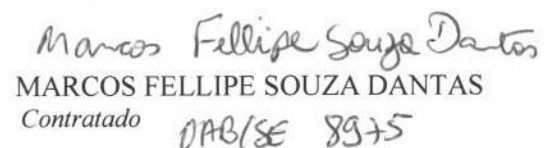 Marcos Fellipe Souza Dantas
MARCOS FELLIPE SOUZA DANTAS
Contratado
OAB/SE 8975